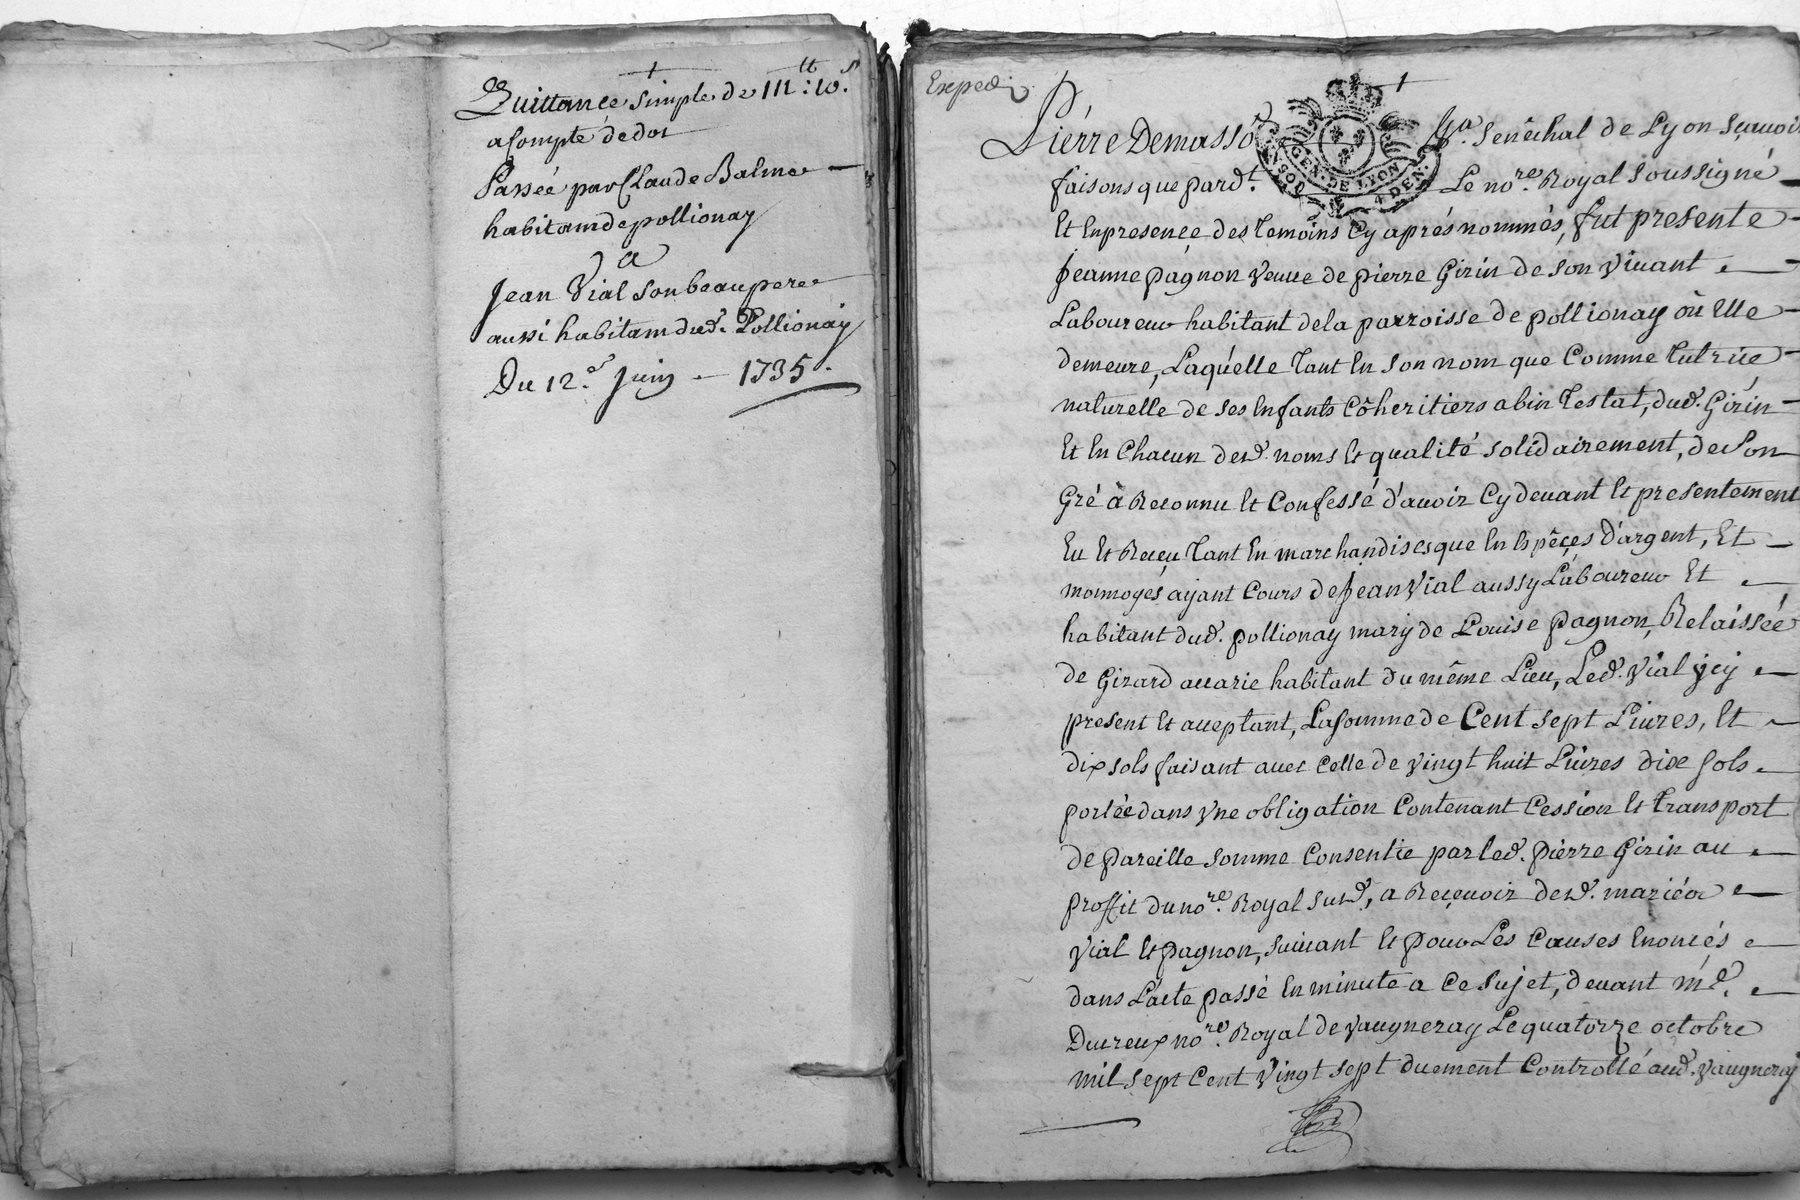 Quittance simple de 111 ₶: 10 s.
acompte de dot
Passée par Claude Balme
habitant de pollionay
a
Jean Vial son beaupere
aussi habitant dud. Pollionay
Du 12e Juin 1735.
Exped
Pierre Demasso Sénéchal de Lyon Scavoir
GEN. DE LYON
4 DEN.
faisons que pardt. Le nore. Royal soussigné
Et En presence des Temoins Cy aprés nommés, fut presente
Jeanne pagnon Veuve de pierre Girin de son Vivant
Laboureur habitant de la parroisse de pollionay où Elle
demeure, Laquelle Tant En son nom que Comme Tutrice
naturelle de ses Enfants Côheritiers abin Testat, dud. Girin
Et En Chacun desd. noms Et qualité solidairement, de Son
Gré à Reconnu Et Confessé d'avoir Cy devant Et presentement
Eu Et Receu Tant En marchandises que En Espêces D'argent, Et
monnoyés ayant Cours de Jean Vial aussy Laboureur Et
habitant dud. pollionay mary de Louise pagnon, Relaissée
de Girard avarie habitant du même Lieu, Led. Vial jcy
present Et aceptant, La somme de Cent sept Livres, Et
dix sols faisant avec Celle de Vingt huit Livres dix sols
portée dans Vne obligation Contenant Cession Et transport
de pareille somme Consentie par led. pierre Girin au
proffit du nore. Royal susd., a Reçevoir desd. mariéz
Vial Et pagnon, suivant Et pour Les Causes Enoncés
dans L'acte passé En minute a Ce sujet, devant me.
Ducreux nore. Royal de Vaugneray Le quatorze octobre
mil sept Cent Vingt sept duement Controllé aud. Vaugneray